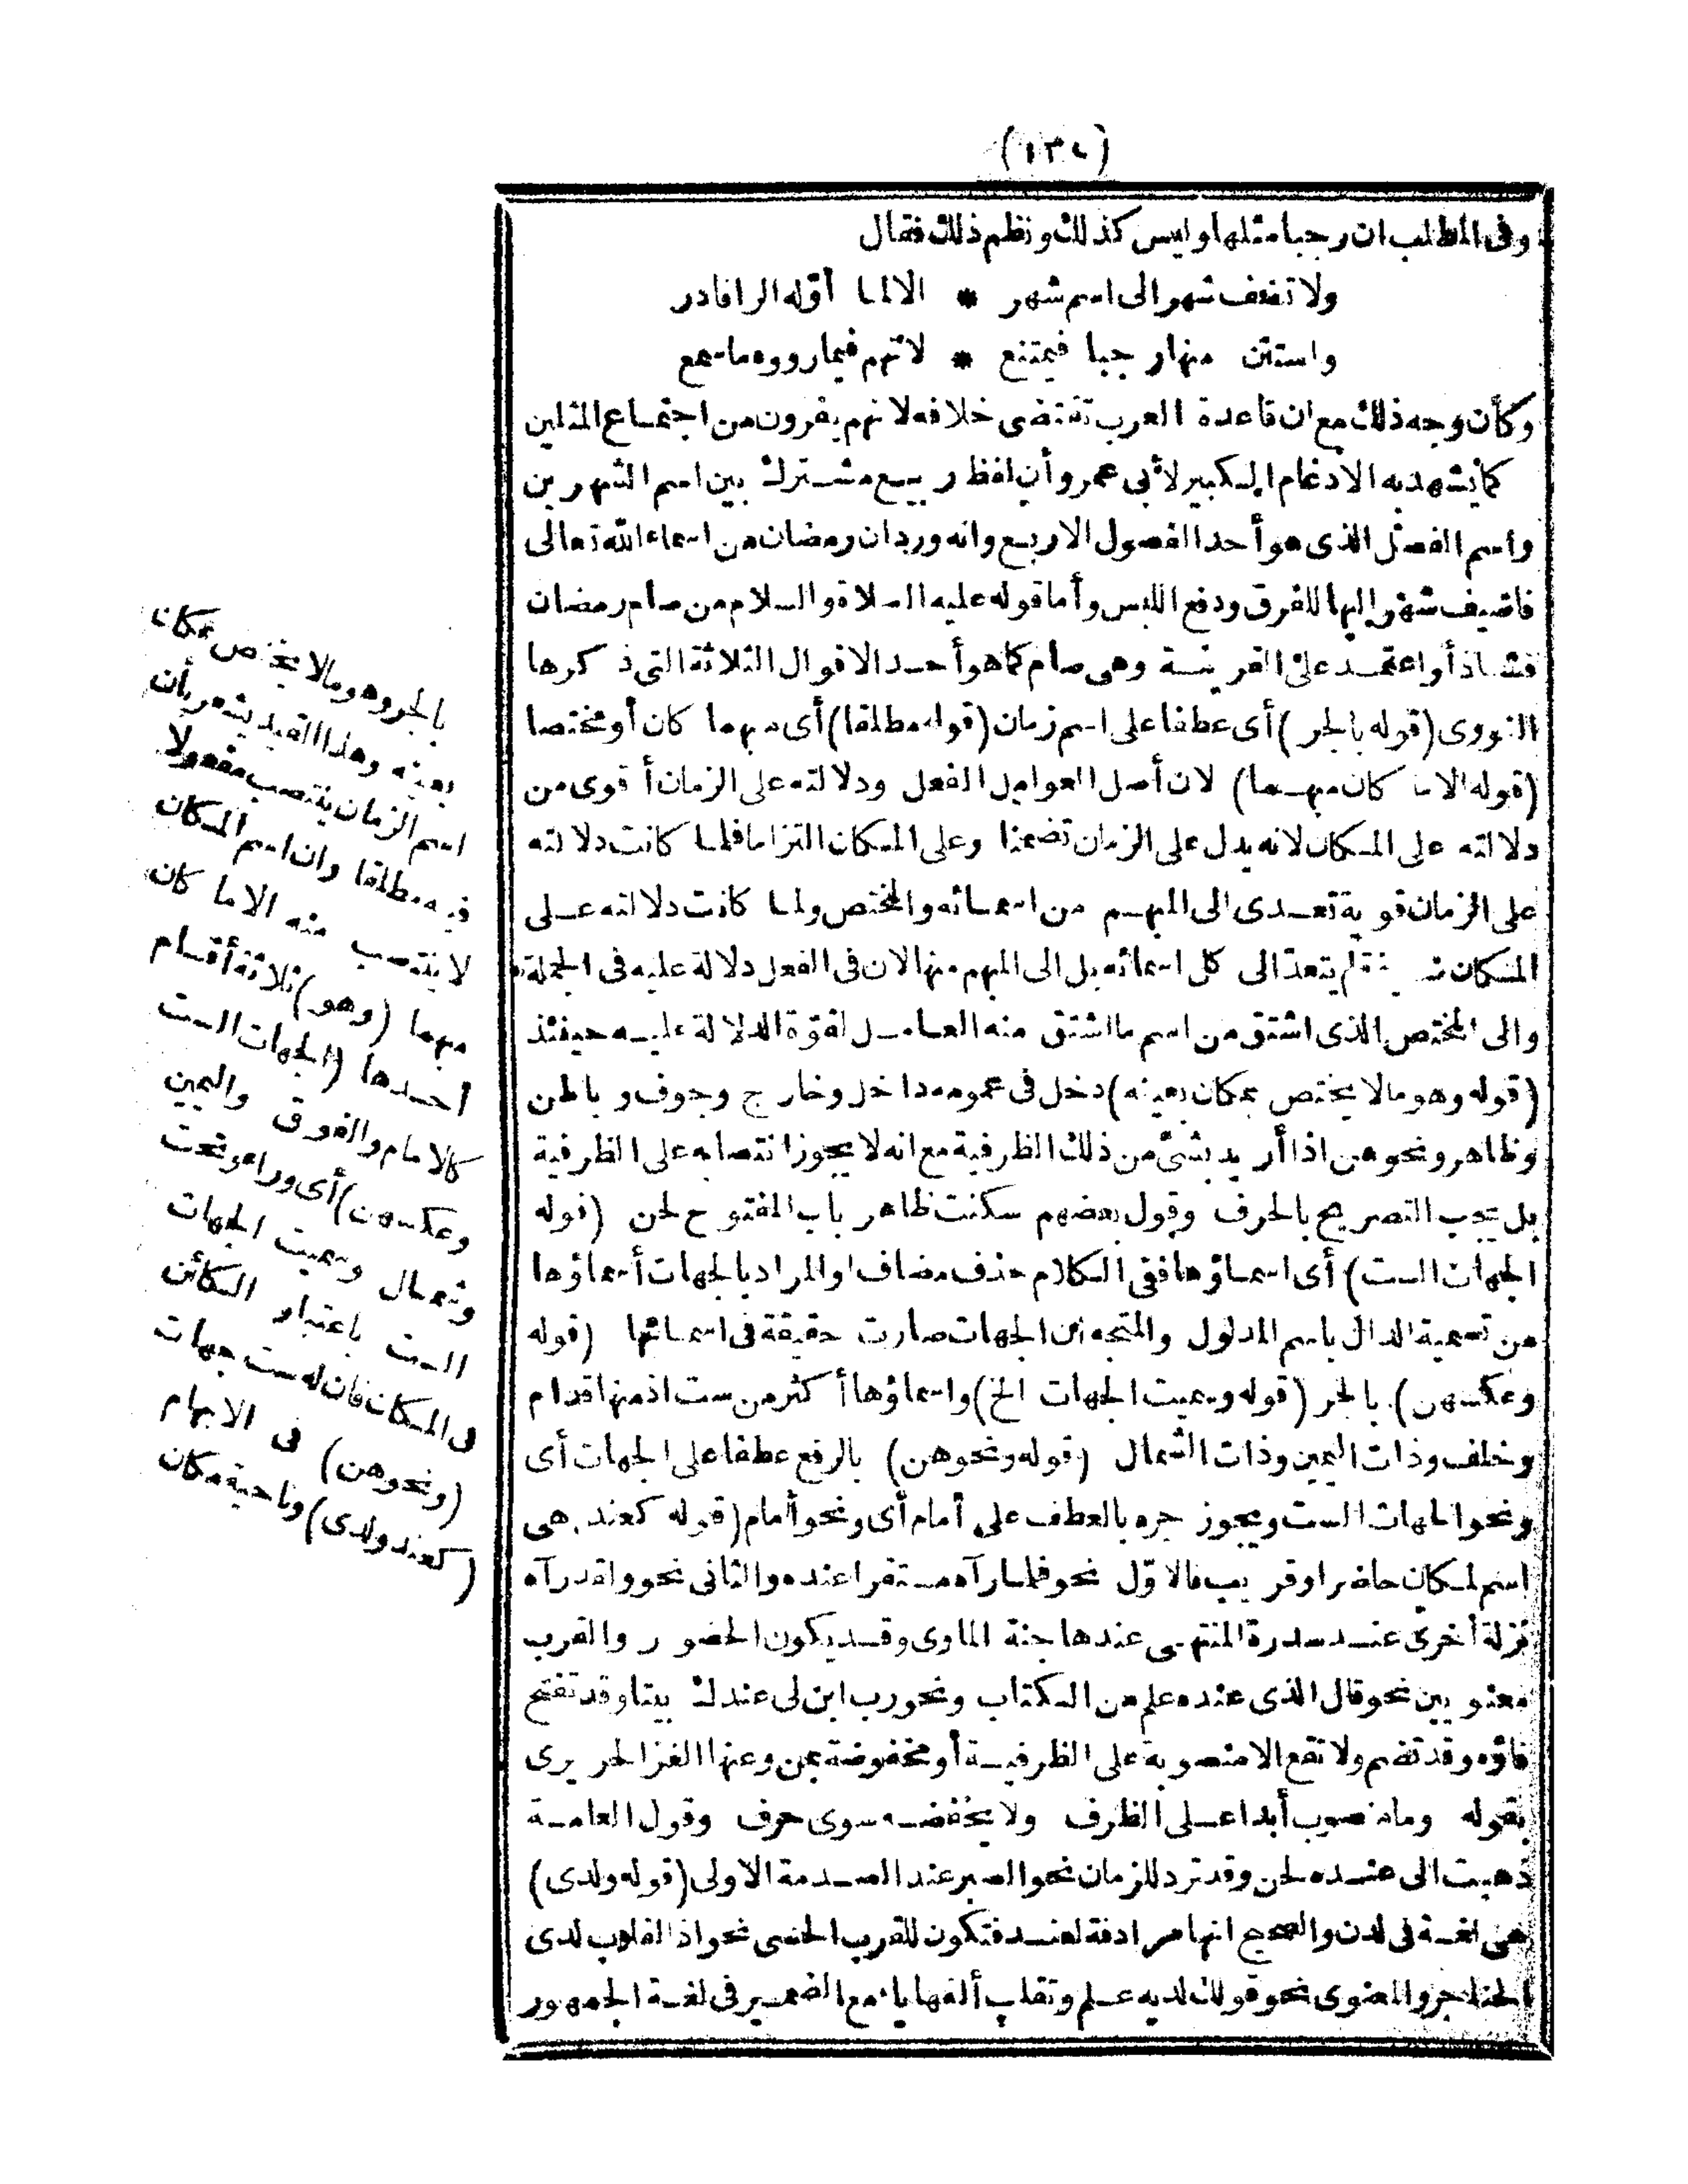 وفى المطلب ان رجبا مثلها وليس كذلك ونظم ذلك فقال
ولا تضف شهر الى اسم شهر * الا لما أوّله الرا فادر
واستثن منها رجبا فيمتنع * لانهم فيما رووه ما سمع
وكأن وجه ذلك مع ان قاعدة العرب تقتضى خلافه لانهم يفرون من اجتماع المثلين
كما يشهد به الادغام الكبير لأبى عمرو أن لفظ ربيع مشترك بين اسم الشهرين
واسم الفصل الذى هو أحد الفصول الاربع وانه ورد ان رمضان من اسماء الله تعالى
فاضيف شهر اليها للفرق ودفع اللبس وأما قوله عليه الصلاة والسلام من صام رمضان
فشاذ أو اعتمد على القرينة وهى صام كما هو أحد الاقوال الثلاثة التى ذكرها
النووى (قوله بالجر) أى عطفا على اسم زمان (قوله مطلقا) أى مبهما كان أو مختصا
(قوله الا ما كان مبهما) لان أصل العوامل الفعل ودلالته على الزمان أقوى من
دلالته على المكان لانه يدل على الزمان تضمنا وعلى المكان التزاما فلما كانت دلالته
على الزمان قوية تعدى الى المبهم من اسمائه والمختص ولما كانت دلالته على
المكان لم يتعدّ الى كل اسمائه بل الى المبهم منها لان فى الفعل دلالة عليه فى الجملة
والى المختص الذى اشتق من اسم ما اشتق منه العامل لقوة الدلالة عليه حينئذ
(قوله وهو ما لا يختص بمكان بعينه) دخل فى عمومه داخل وخارج وجوف وباطن
وظاهر ونحوهن اذا أريد بشئ من ذلك الظرفية مع انه لا يجوز انتصابه على الظرفية
بل يجب التصريح بالحرف وقول بعضهم سكنت ظاهر باب الفتوح لحن (قوله
الجهات الست) أى اسماؤها ففى الكلام حذف مضاف او المراد بالجهات أسماؤها
من تسمية الدال باسم المدلول والمتجه ان الجهات صارت حقيقة فى اسمائها (قوله
وعكسهن) بالجر (قوله وسميت الجهات الخ) واسماؤها أكثر من ست اذ منها قدام
وخلف وذات اليمين وذات الشمال (قوله ونحوهن) بالرفع عطفا على الجهات أى
ونحو الجهات الست ويجوز جره بالعطف على أمام أى ونحو أمام (قوله كعند) هى
اسم لمكان حاضر او قريب فالاوّل نحو فلما رآه مستقرا عنده والثانى نحو ولقد رآه
نزلة أخرى عند سدرة المنتهى عندها جنة الماوى وقد يكون الحضور والقرب
معنويين نحو قال الذى عنده علم من الكتاب ونحو رب ابن لى عندك بيتا وقد تفتح
فاؤه وقد تضم ولا تقع الا منصوبة على الظرفية أو مخفوضة بمن وعنها الغز الحريرى
بقوله وما منصوب أبدا على الظرف ولا يخفضه سوى حرف وقول العامة
ذهبت الى عنده لحن وقد ترد للزمان نحو الصبر عند الصدمة الاولى (قوله ولدى)
هى لغة فى لدن والصحيح انها مرادفة لعند فتكون للقرب الحسى نحو اذ القلوب لدى
الحناجر والمعنوى نحو قولك لديه علم وتقلب ألفها ياء مع الضمير فى لغة الجمهور
بالجر وهو ما لا يختص بمكان
بعينه وهذا القيد يشعر بأن
اسم الزمان ينتصب مفعولا
فيه مطلقا وان اسم المكان
لا ينتصب منه الا ما كان
مبهما (وهو) ثلاثة أقسام
أحدها (الجهات الست
كالامام والفوق واليمين
وعكسهن) أى وراء وتحت
وشمال وسميت الجهات
الست باعتبار الكائن
فى المكان فان له ست جهات
(ونحوهن) فى الابهام
(كعند ولدى) وناحية مكان